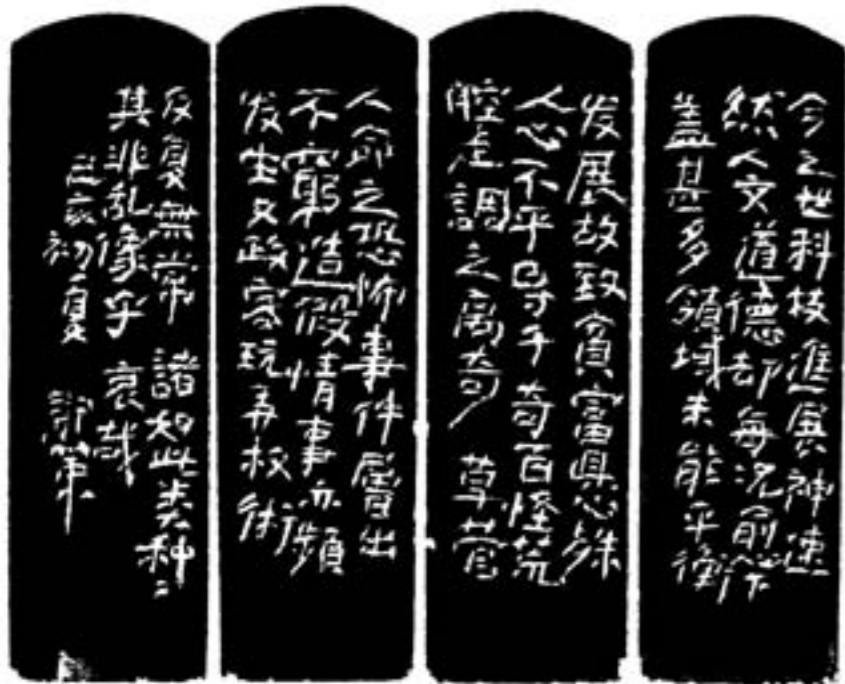 今之世科技進展神速
然人文道德却每况俞下
盖甚多領域未能平衡
发展故致貧富悬殊
人心不平导千奇百怪荒
腔走調之离奇 草菅
人命之恐怖事件層出
不窮造假情事亦頻
发生又政客玩弄权術
反复無常 諸如此类种々
其非乱像乎 哀哉
己亥初夏